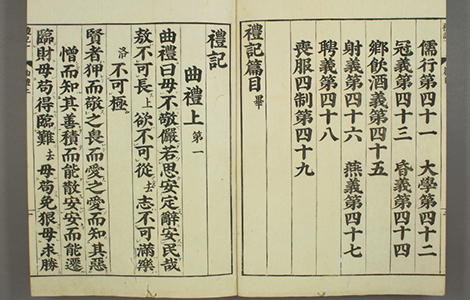 儒行第四十一　大學第四十二
冠義第四十三　昏義第四十四
鄉飲酒義第四十五
射義第四十六　燕義第四十七
聘義第四十八
喪服四制第四十九
禮記篇目畢
禮記
曲禮上第一
曲禮曰毋不敬儼若思安定辭安民哉
敖不可長上欲不可從去志不可滿樂
洛不可極
賢者狎而敬之畏而愛之愛而知其惡
憎而知其善積而能散安安而能遷
臨財毋苟得臨難去毋苟免狠毋求勝